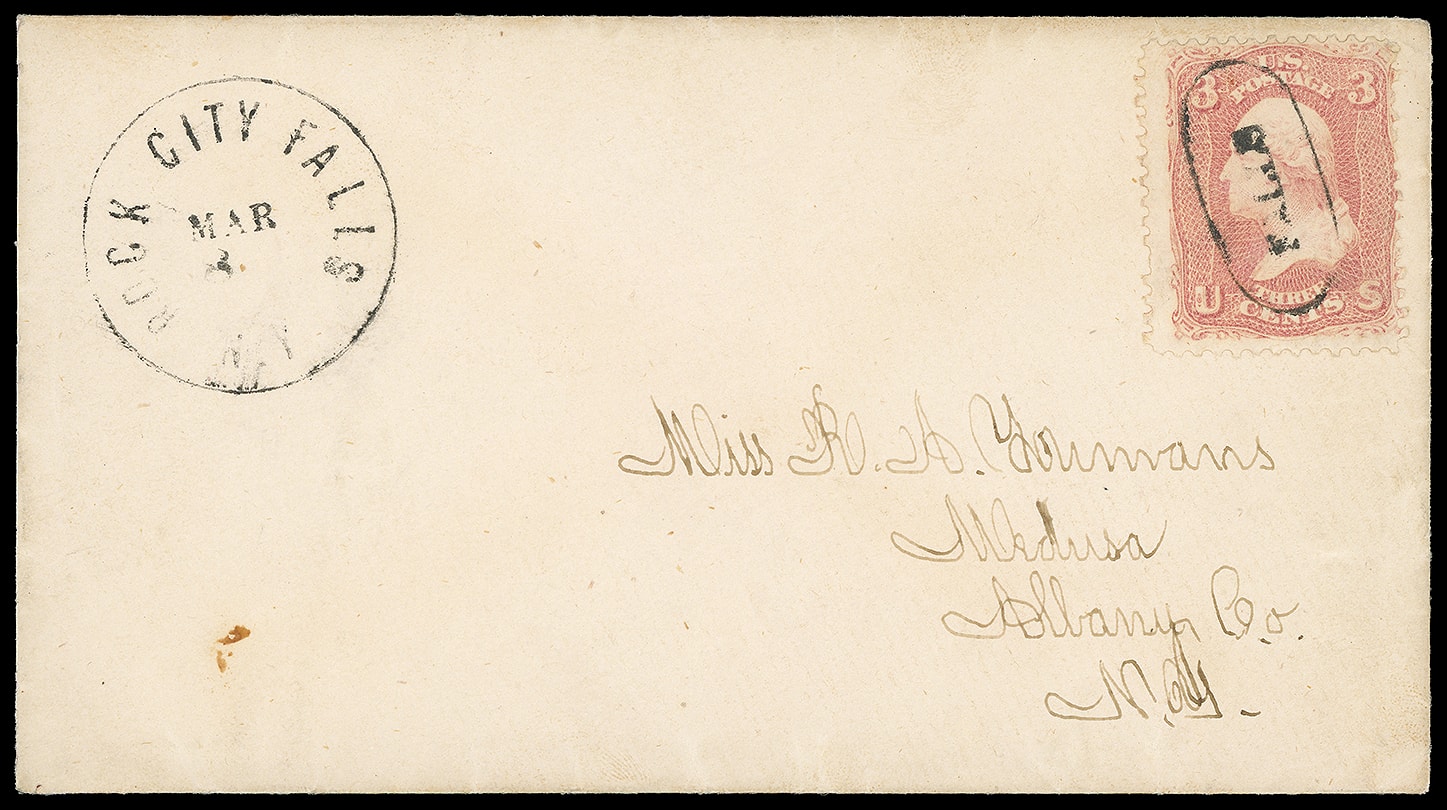 ROCK CITY FALLS
MAR
3
N.Y.
U.S.
POSTAGE
3 3
THREE
CENTS
U S
Miss R. A. Youmans
Medusa
Albany Co.
N.Y.